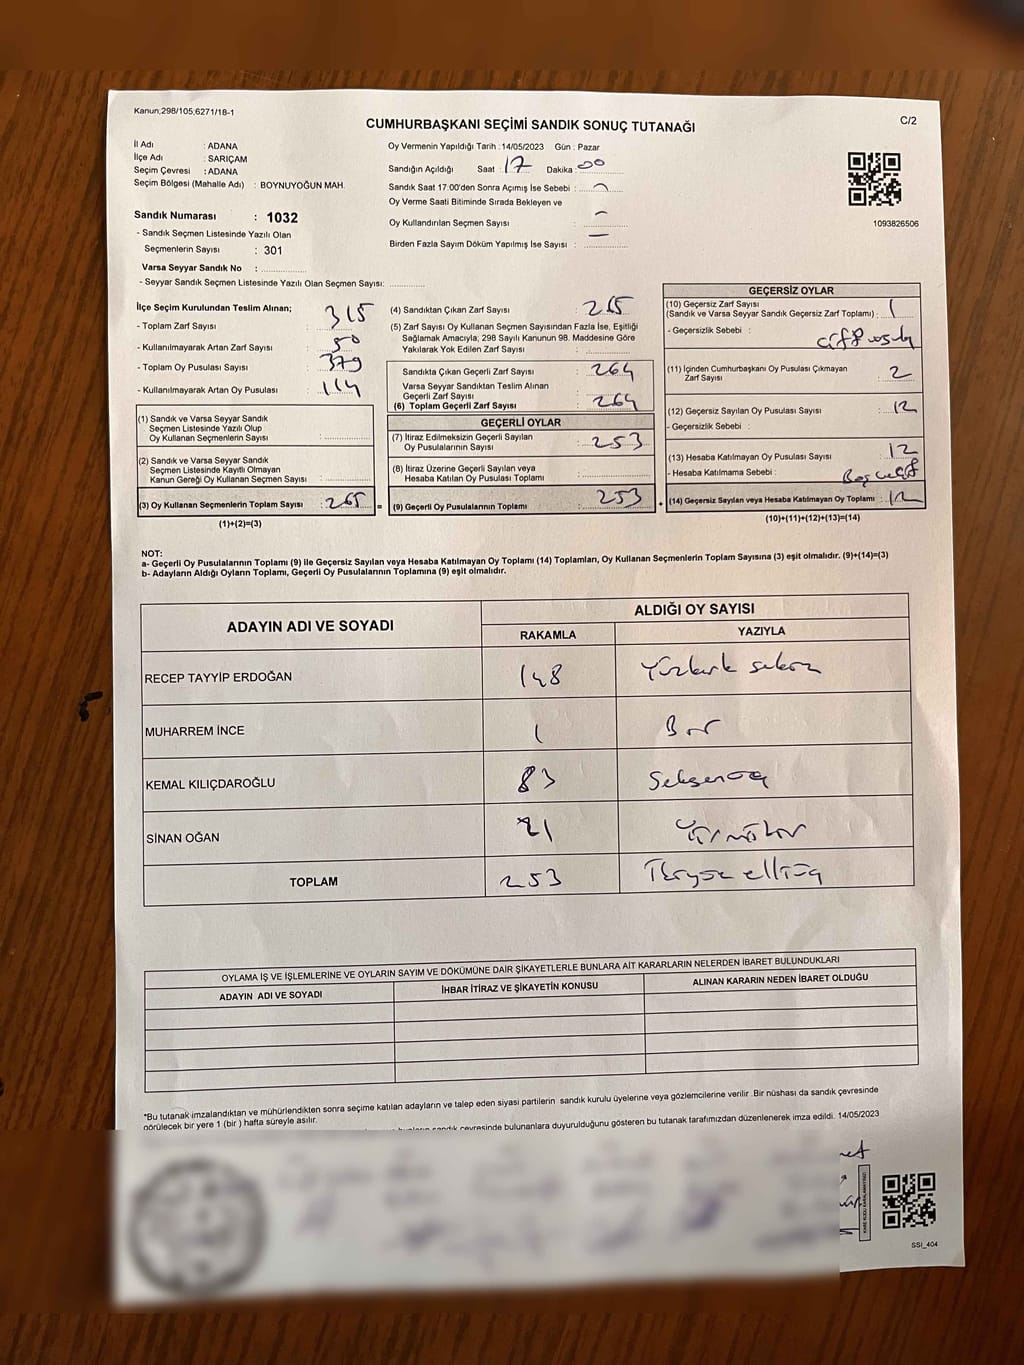 Kanun;298/105,6271/18-1
C/2
CUMHURBAŞKANI SEÇİMİ SANDIK SONUÇ TUTANAĞI
İl Adı : ADANA
İlçe Adı : SARIÇAM
Seçim Çevresi : ADANA
Seçim Bölgesi (Mahalle Adı) : BOYNUYOĞUN MAH.
Sandık Numarası : 1032
- Sandık Seçmen Listesinde Yazılı Olan
Seçmenlerin Sayısı : 301
Varsa Seyyar Sandık No :
- Seyyar Sandık Seçmen Listesinde Yazılı Olan Seçmen Sayısı:
Oy Vermenin Yapıldığı Tarih : 14/05/2023 Gün : Pazar
Sandığın Açıldığı Saat : 17 Dakika : 00
Sandık Saat 17:00'den Sonra Açımış İse Sebebi :
Oy Verme Saati Bitiminde Sırada Bekleyen ve
Oy Kullandırılan Seçmen Sayısı : -
Birden Fazla Sayım Döküm Yapılmış İse Sayısı : -
1093826506
İlçe Seçim Kurulundan Teslim Alınan;
- Toplam Zarf Sayısı : 315
- Kullanılmayarak Artan Zarf Sayısı : 50
- Toplam Oy Pusulası Sayısı : 379
- Kullanılmayarak Artan Oy Pusulası : 114
(1) Sandık ve Varsa Seyyar Sandık
Seçmen Listesinde Yazılı Olup
Oy Kullanan Seçmenlerin Sayısı :
(2) Sandık ve Varsa Seyyar Sandık
Seçmen Listesinde Kayıtlı Olmayan
Kanun Gereği Oy Kullanan Seçmen Sayısı :
(3) Oy Kullanan Seçmenlerin Toplam Sayısı : 265
(1)+(2)=(3)
(4) Sandıktan Çıkan Zarf Sayısı : 265
(5) Zarf Sayısı Oy Kullanan Seçmen Sayısından Fazla İse, Eşitliği
Sağlamak Amacıyla; 298 Sayılı Kanunun 98. Maddesine Göre
Yakılarak Yok Edilen Zarf Sayısı :
Sandıkta Çıkan Geçerli Zarf Sayısı : 264
Varsa Seyyar Sandıktan Teslim Alınan
Geçerli Zarf Sayısı :
(6) Toplam Geçerli Zarf Sayısı : 264
=
GEÇERLİ OYLAR
(7) İtiraz Edilmeksizin Geçerli Sayılan
Oy Pusulalarının Sayısı : 253
(8) İtiraz Üzerine Geçerli Sayılan veya
Hesaba Katılan Oy Pusulası Toplamı :
(9) Geçerli Oy Pusulalarının Toplamı : 253
+
GEÇERSİZ OYLAR
(10) Geçersiz Zarf Sayısı
(Sandık ve Varsa Seyyar Sandık Geçersiz Zarf Toplamı) : 1
- Geçersizlik Sebebi :
(11) İçinden Cumhurbaşkanı Oy Pusulası Çıkmayan
Zarf Sayısı : 2
(12) Geçersiz Sayılan Oy Pusulası Sayısı : 12
- Geçersizlik Sebebi :
(13) Hesaba Katılmayan Oy Pusulası Sayısı : 12
- Hesaba Katılmama Sebebi :
(14) Geçersiz Sayılan veya Hesaba Katılmayan Oy Toplamı : 12
(10)+(11)+(12)+(13)=(14)
NOT:
a- Geçerli Oy Pusulalarının Toplamı (9) ile Geçersiz Sayılan veya Hesaba Katılmayan Oy Toplamı (14) Toplamları, Oy Kullanan Seçmenlerin Toplam Sayısına (3) eşit olmalıdır. (9)+(14)=(3)
b- Adayların Aldığı Oyların Toplamı, Geçerli Oy Pusulalarının Toplamına (9) eşit olmalıdır.
ADAYIN ADI VE SOYADI
ALDIĞI OY SAYISI
RAKAMLA YAZIYLA
RECEP TAYYİP ERDOĞAN 148 Yüzkırk sekiz
MUHARREM İNCE 1 Bir
KEMAL KILIÇDAROĞLU 83 Seksenüç
SİNAN OĞAN 21 Yirmibir
TOPLAM 253 İkiyüz elliüç
OYLAMA İŞ VE İŞLEMLERİNE VE OYLARIN SAYIM VE DÖKÜMÜNE DAİR ŞİKAYETLERLE BUNLARA AİT KARARLARIN NELERDEN İBARET BULUNDUKLARI
ADAYIN ADI VE SOYADI
İHBAR İTİRAZ VE ŞİKAYETİN KONUSU
ALINAN KARARIN NEDEN İBARET OLDUĞU
*Bu tutanak imzalandıktan ve mühürlendikten sonra seçime katılan adayların ve talep eden siyasi partilerin sandık kurulu üyelerine veya gözlemcilerine verilir .Bir nüshası da sandık çevresinde
görülecek bir yere 1 (bir ) hafta süreyle asılır.
sandık çevresinde bulunanlara duyurulduğunu gösteren bu tutanak tarafımızdan düzenlenerek imza edildi. 14/05/2023
SSI_404